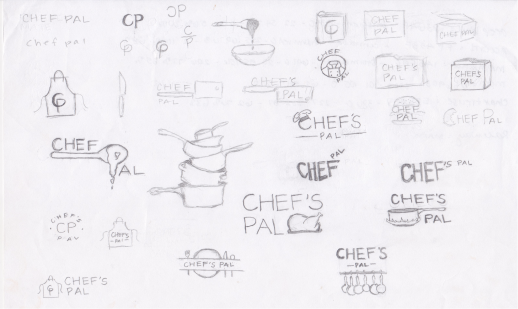 CHEF PAL
CP
CP
CP
CHEF PAL
CHEF
PAL
chef pal
CP
CP
CP
CHEF
PAL
CHEF'S
PAL
CHEF'S
PAL
CP
CHEF
PAL
CHEF
PAL
CHEF
PAL
CHEF PAL
CHEF'S
PAL
CHEF
PAL
CHEF
PAL
CHEF'S PAL
CHEF'S
PAL
CHEF'S
PAL
CHEF'S
CP
PAL
CHEF'S
PAL
CHEF'S PAL
CHEF'S
PAL
CHEF'S
PAL